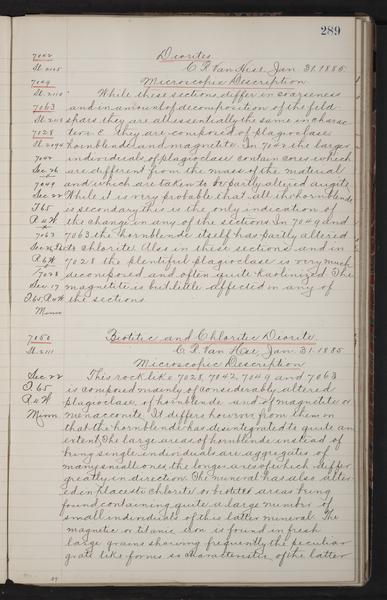 289
7042 Diorites.
St. 2105 C. R. Van Hise, Jan. 31. 1885.
7049 Microscopic Description
St. 2110 While these sections differ in coarseness
7063 and in amount of decomposition of the feld-
spars they are all essentially the same in charac-
7028 ter. They are composed of plagioclase,
hornblende and magnetite. In 7042 the larger
7042 individuals of plagioclase contain cores which
Sec 26 are different from the mass of the material
7049 and which are taken to be partly altered augite
Sec 22 While it is very probable that all the hornblende
T 65 is secondary this is the only indication of
R 6 W the change in any of the sections. In 7049 and
7063 7063 the hornblende itself has partly altered
to chlorite. Also in these sections and in
R 6 W 7028 the plentiful plagioclase is very much
7028 decomposed and often quite kaolinized. The
Sec 17 magnetite is but little affected in any of
T 65 R 6 W the sections
Minn
7050 Biotitic and Chloritic Diorite.
St. 2111 C. R. Van Hise, Jan. 31. 1885
Microscopic Description
Sec 22 This rock like 7028, 7042, 7049 and 7063
T 65 is composed mainly of considerably altered
R 6 W plagioclase, of hornblende and of magnetite or
Minn menaccanite. It differs however from them in
that the hornblende has disintegrated to quite an
extent. The large areas of hornblende instead of
being single individuals are aggregates of
many small ones, the longer axes of which differ
greatly in direction. The mineral has also alter-
ed in places to chlorite or biotite areas being
found containing quite a large number of
small individuals of this latter mineral. The
magnetic or titanic iron is found in fresh
large grains showing frequently the peculiar
grate like forms so characteristic of the latter